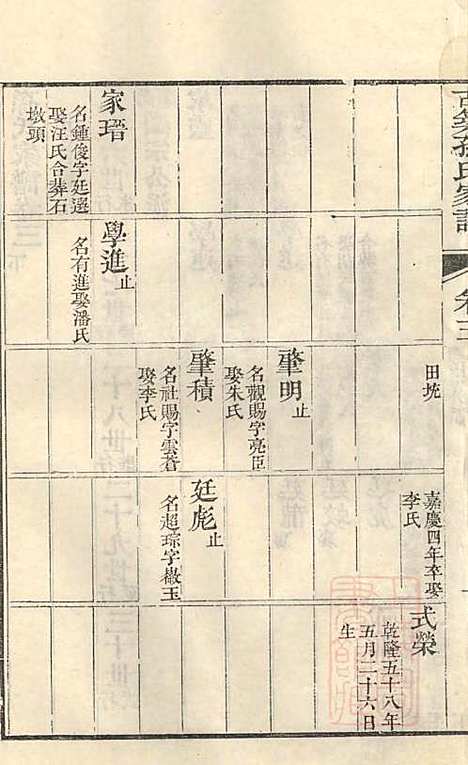 古築孫氏家譜
卷三
田坑
嘉慶四年卒娶
李氏
式榮
乾隆五十八年
五月二十六日
生
肇明止
名觀賜字亮臣
娶朱氏
肇積
名社賜字雲蒼
娶李氏
廷彪止
名超琮字徽玉
學進止
名有進娶潘氏
家瑨
名鍾俊字廷選
娶汪氏合葬石
墩頭